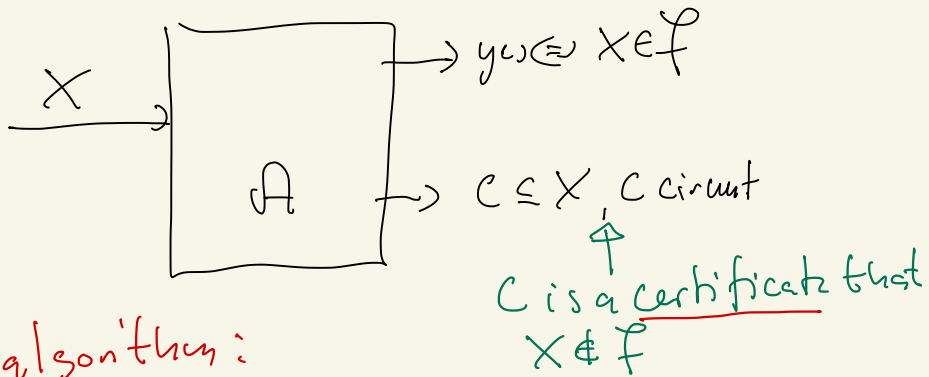 X
→ yes ⇔ X ∈ f
A
→ C ⊆ X, C circuit
C is a certificate that
X ∉ f
algorithm: